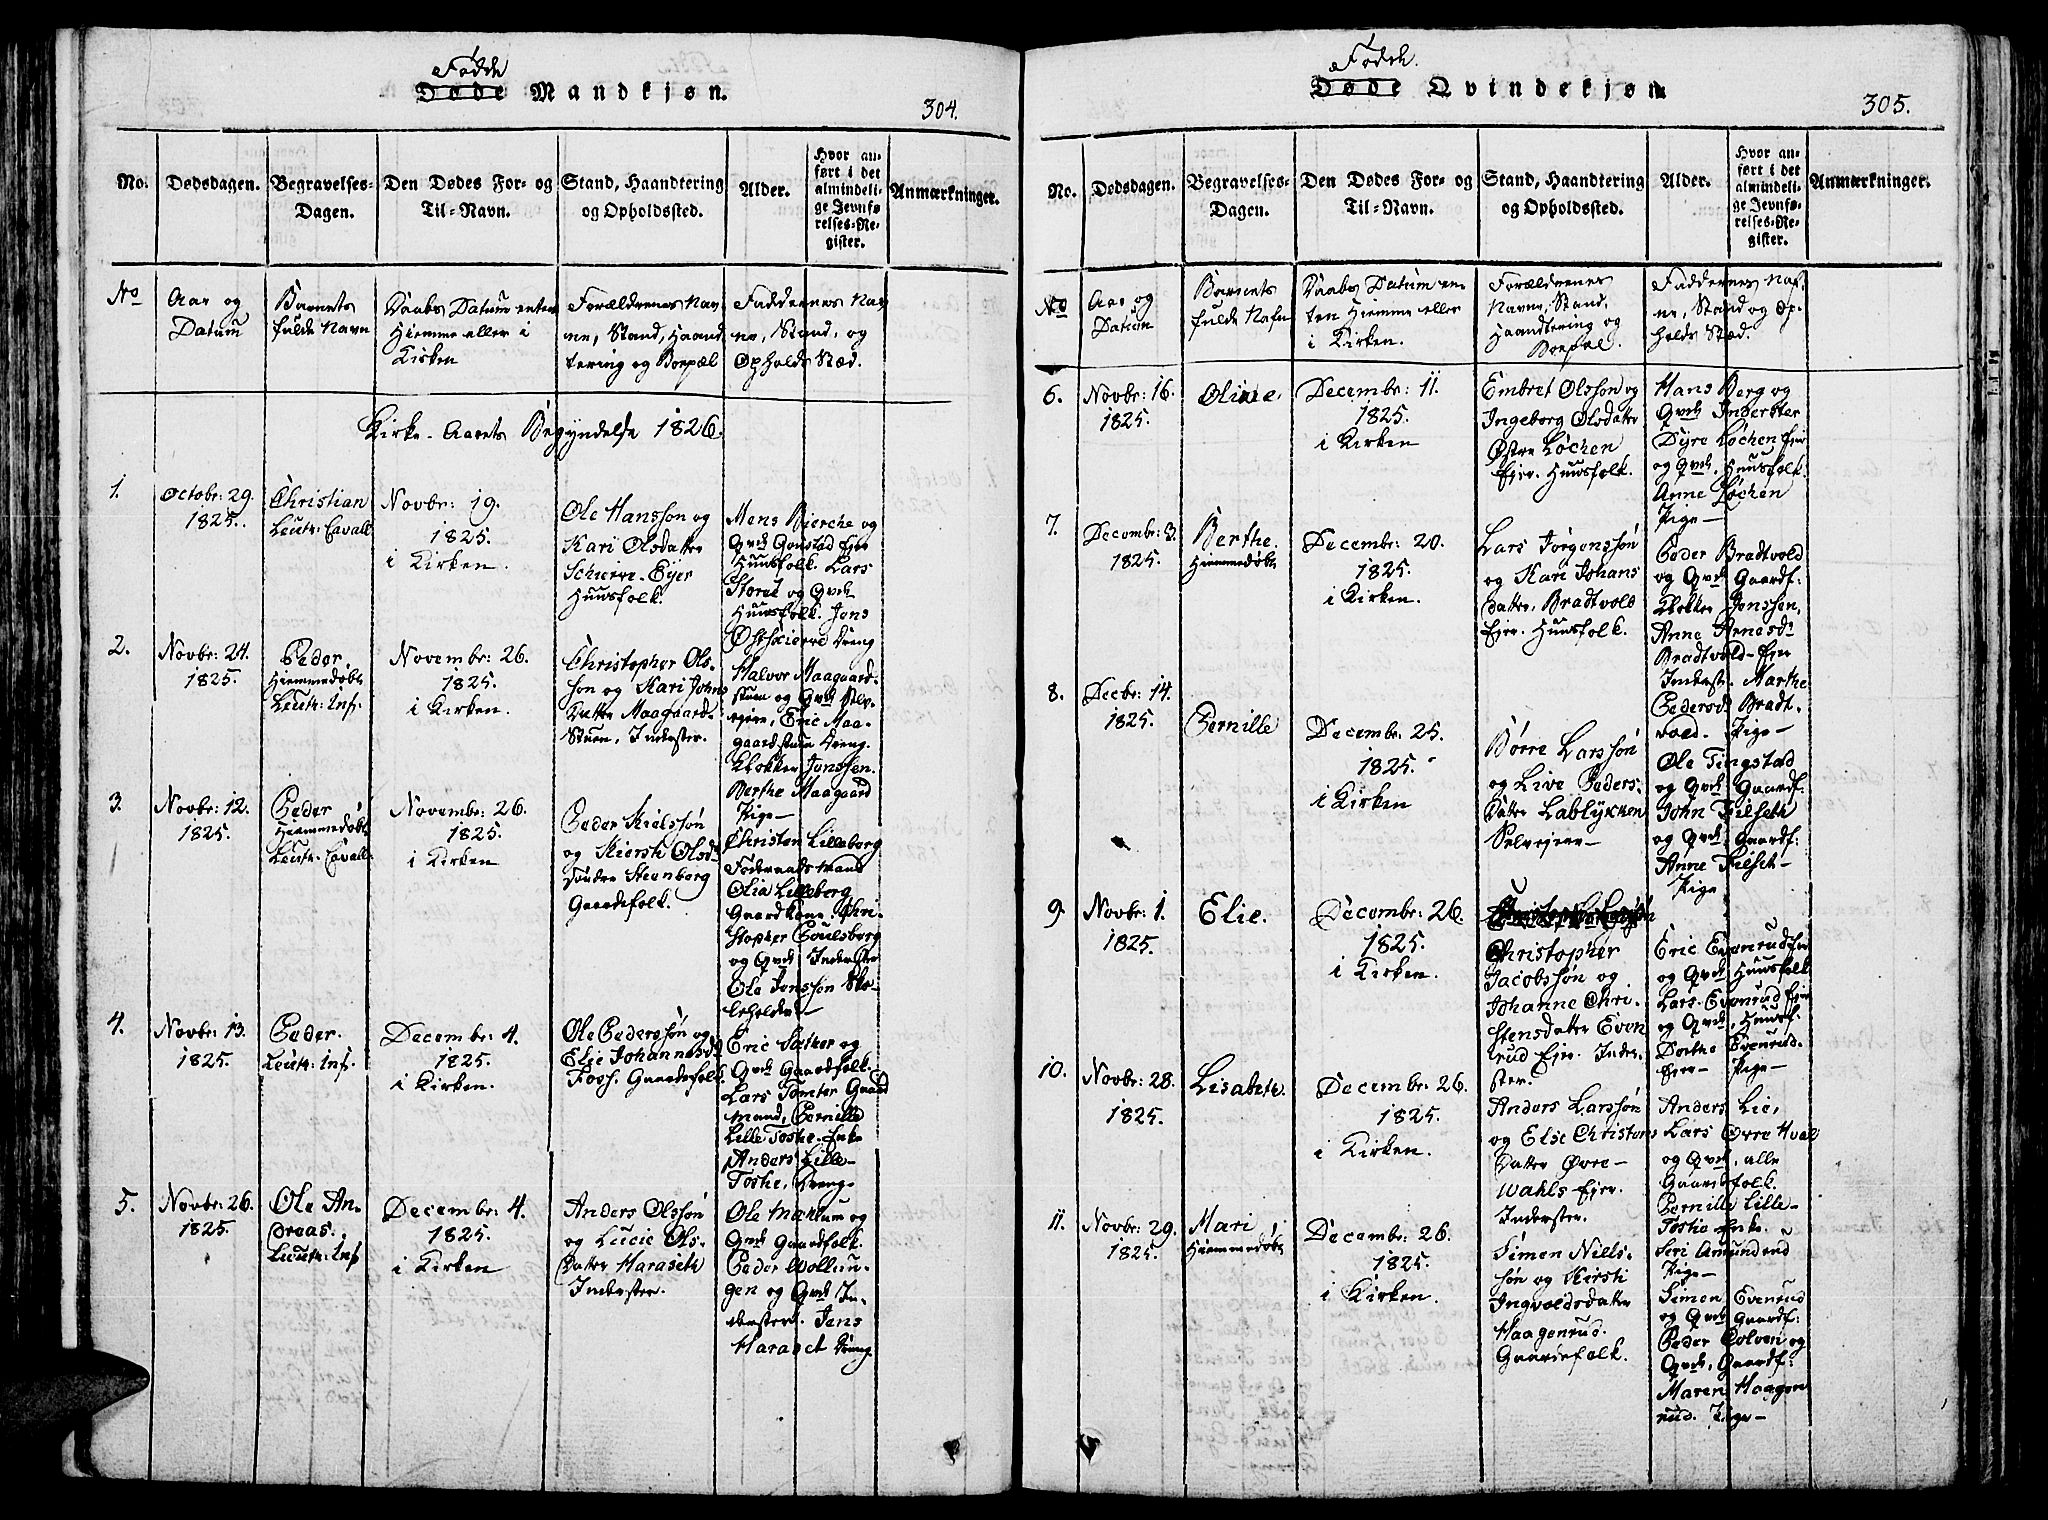 Fødde
Døde Mandkjøn.
304.
No.
Dødsdagen.
Begravelses-
Dagen.
Den Dødes For- og
Til-Navn.
Stand, Haandtering
og Opholdssted.
Alder.
Hvor an-
ført i det
almindeli-
ge Jevnfø-
relses-Re-
gister.
Anmærkninger.
No
Aar og
Datum
Barnets
fulde Navn
Daabs Datum enten
Hiemme eller i
Kirken
Forældrenes Nav-
ne, Stand, Haand
tering og Boepæl
Faddernes Nav
ne, Stand, og
Opholds Stæd.
Kirke-Aarets Begyndelse 1826.
1.
Octobr: 29.
1825.
Christian
Leutn: Cavall.
Novbr: 19.
1825.
i Kirken.
Ole Hansson og
Kari Olsdatter
Schierre-Eyer
Huusfolk.
Mens Bierche og
Qvde Gonstad Eier
Huusfolk. Lars
Storet og Qvde
Huusfolk. Jens
Østskierre Dreng
2.
Novbr: 24.
1825.
Peder
Hiemmedøbt
Leutn: Inf.
Novembr: 26.
1825.
i Kirken.
Christopher Ols-
son og Kari Johns
Datter Maagaard-
Stuen, Inderster.
Halvor Maagaard-
stuen og Qvde Selv-
eiere, Eric Maa-
gaardstuen Dreng.
Klokker Jonssen.
Berthe Maagaard
Pige-
3.
Novbr: 12.
1825.
Peder
Hiemmedøbt
Leutn: Cavall.
Novembr: 26.
1825.
i Kirken
Peder Kielssøn
og Kiersti Olsd
Søndre Steenberg
Gaardefolk.
Christen Lilleberg
Føderaadsmand
Olia Lilleberg
Gaardkone, Chri-
stopher Poulsborg
og Qvde Inderster
Ole Jonssøn Sko-
leholder-
4.
Novbr: 13.
1825.
Peder.
Leutn: Inf.
Decembr: 4.
1825.
i Kirken.
Ole Pederssøn og
Elie Johannesd
Foss. Gaardefolk.
Eric Sæther og
Qvde Gaardfolk.
Lars Tomter Gaard
mand, Pernille
Lille Toshe. Enke
Anders Lille-
Toshe. Dreng-
5.
Novbr: 26.
1825.
Ole An-
dreas.
Leutn: Inf
Decembr: 4.
1825.
i Kirken
Anders Olssøn
og Lucie Ols-
Datter Haraseth
Inderster.
Ole Mæhlum og
Qvde Gaardfolk.
Peder Wollun-
gen og Qvde In-
derster. Jens
Haraset Dreng.
Fødde.
Døde Qvindekjøn
305.
No.
Dødsdagen.
Begravelses-
Dagen.
Den Dødes For- og
Til-Navn.
Stand, Haandtering
og Opholdssted.
Alder.
Hvor an-
ført i det
almindeli-
ge Jevnfø-
relses-Re-
gister.
Anmærkninger.
No
Aar og
Datum
Barnets
fulde Nafn
Daabs Datum en-
ten Hiemme eller
i Kirken.
Forældrenes
Navn, Stand,
Haandtering og
Boepæl.
Faddernes Naf-
ne, Stand og Op-
holds Stæd.
6.
Novbr: 16.
1825.
Oline.
Decembr: 11.
1825.
i Kirken
Embret Olsson og
Ingeborg Olsdatter
Østre Løchen
Eier. Huusfolk.
Hans Berg og
Qvde Inderster
Dyre Løchen Eier
og Qvde. Huusfolk.
Anne Løchen
Pige-
7.
Decembr: 3.
1825.
Berthe.
Hiemmedøbt
Decembr: 20.
1825.
i Kirken.
Lars Jørgenssøn
og Kari Johans
Datter, Bradtvold
Eier. Huusfolk.
Peder Bradtvold
og Qvde Gaardf.
Klokker Jonssen,
Anne Arnesdr
Bradtvold-Eier
Inderst. Marthe
Pedersd Bradt-
vold. Pige-
8.
Decbr: 14.
1825.
Pernille
Decembr: 25.
1825.
i Kirken
Børre Larssøn
og Live Peders-
Datter Lablychen
Selveiere-
Ole Tingstad
og Qvde Gaardf.
John Filseth
og Qvde Gaardf:
Anne Filseth-
Pige
9.
Novbr: 1.
1825.
Elie.
Decembr: 26.
1825.
i Kirken.
Christopher
Jacobssøn og
Johanne Chri-
stensdatter Even
rud Eier. Inder-
ster.
Eric Evenrud Eier
og Qvde Huusfolk
Lars Evenrud Eier
og Qvde, Huusf.
Dorthe Evenrud-
Eier- Pige-
10.
Novbr: 28.
1825.
Lisabeth.
Decembr: 26.
1825.
i Kirken.
Anders Larssøn
og Else Christens
Datter Øvre-
Wahls Eier.
Inderster.
Anders Lie,
Lars Øvre Hval
og Qvde, alle
Gaardfolk.
Pernille Lille-
Toshe Enke.
Siri Amundrud
Pige-
11.
Novbr: 29.
1825.
Mari
Hiemmedøbt
Decembr: 26.
1825.
i Kirken.
Simen Niels-
søn og Kirsti
Ingvoldsdatter
Haagenrud.
Gaardefolk.
Simen Evenrud
og Qvde Gaardf:
Peder Colven og
Qvde, Gaardf:
Maren Haagen
rud. Pige-